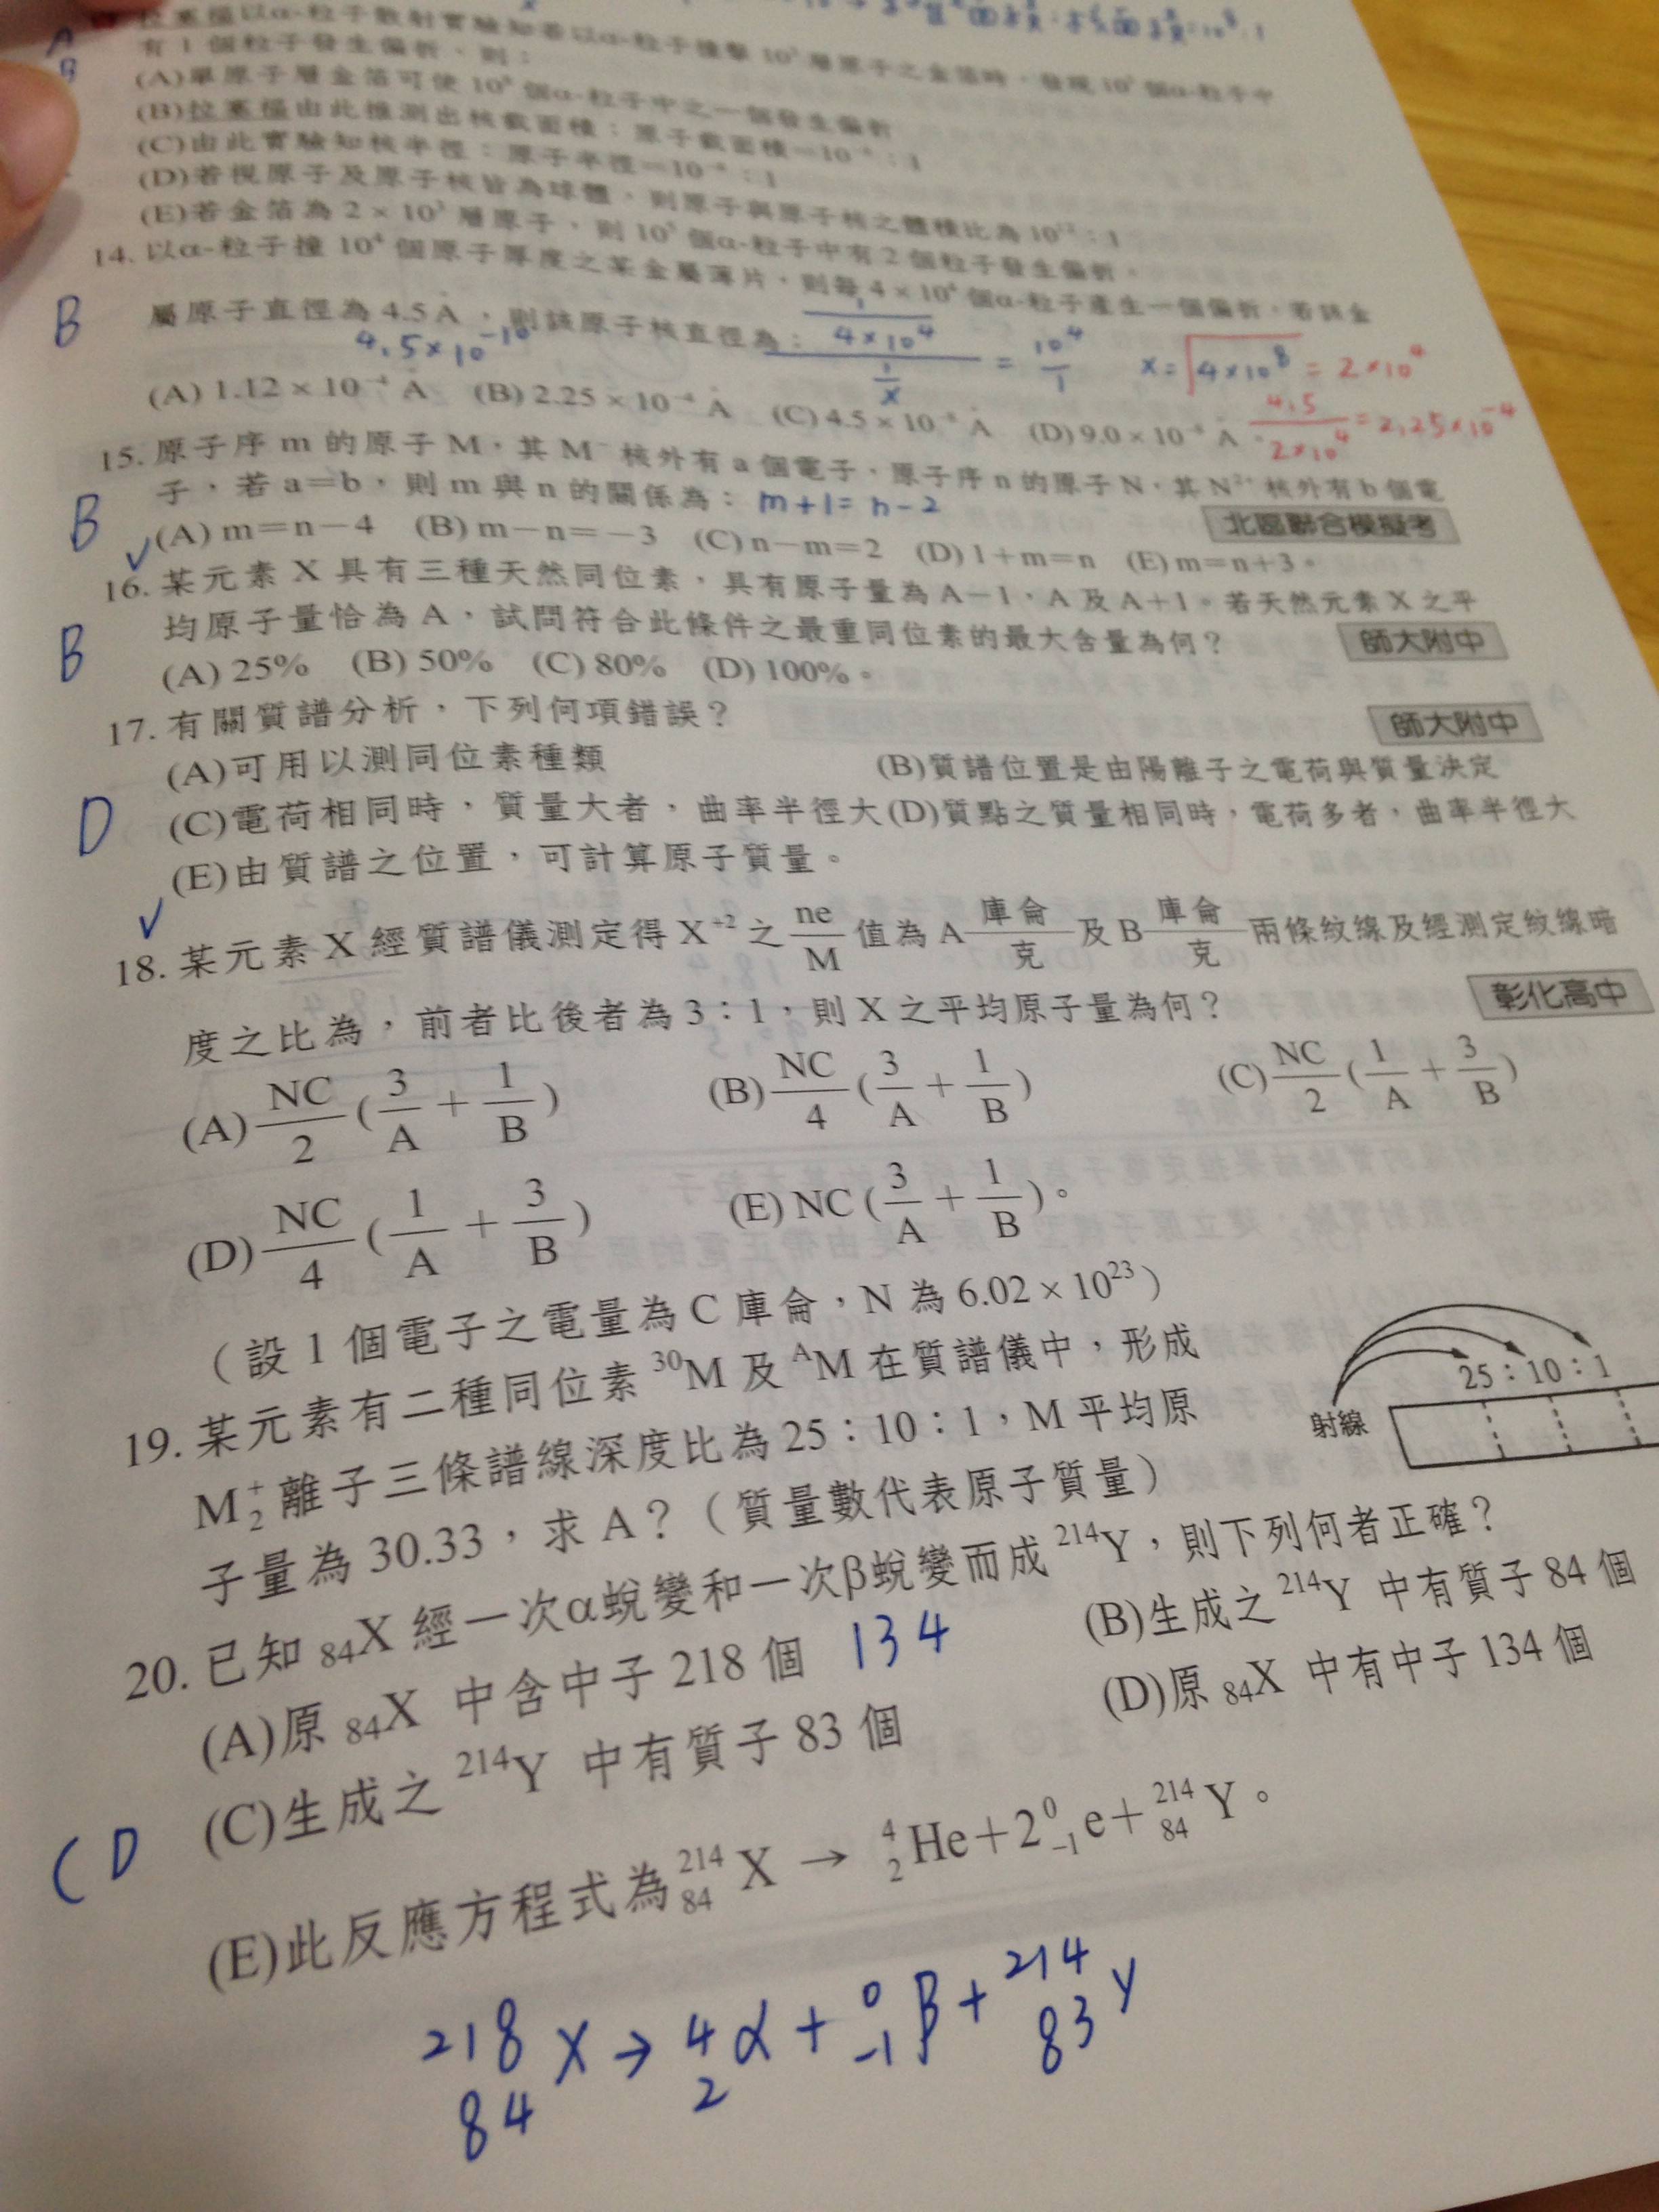 拉塞福以α-粒子散射實驗知若以α-粒子撞擊 10³ 層原子之金箔時，發現 10⁵ 個α-粒子中
有 1 個粒子發生偏折，則：
(A)單原子層金箔可使 10⁸ 個α-粒子中之一個發生偏折
(B)拉塞福由此推測出核截面積：原子截面積=
(C)由此實驗知核半徑：原子半徑=10⁻⁴：1
(D)若視原子及原子核皆為球體，則原子與原子核之體積比為 10¹²：1
(E)若金箔為 2 × 10³ 層原子，則 10⁵ 個α-粒子中有 2 個粒子發生偏折。
14. 以α-粒子撞 10⁴ 個原子厚度之某金屬薄片，則每 4 × 10⁴ 個α-粒子產生一個偏折，若該金
B
屬原子直徑為 4.5 Å ，則該原子核直徑為：
4.5×10⁻¹⁰
1/(4×10⁴) / (1/x) = 10⁴/1 x=√(4×10⁸) = 2×10⁴
4.5/(2×10⁴) = 2.25×10⁻⁴
(A) 1.12 × 10⁻⁴ Å (B) 2.25 × 10⁻⁴ Å (C) 4.5 × Å (D) 9.0 × Å 。
15. 原子序 m 的原子 M，其 M⁻ 核外有 a 個電子，原子序 n 的原子 N，其 N²⁺ 核外有 b 個電
子，若 a＝b，則 m 與 n 的關係為： m+1=n-2
北區聯合模擬考
B
(A) m＝n－4 (B) m－n＝－3 (C) n－m＝2 (D) 1＋m＝n (E) m＝n＋3。
✓
16. 某元素 X 具有三種天然同位素，具有原子量為 A－1，A 及 A＋1。若天然元素 X 之平
均原子量恰為 A，試問符合此條件之最重同位素的最大含量為何？ 師大附中
B
(A) 25% (B) 50% (C) 80% (D) 100%。
17. 有關質譜分析，下列何項錯誤？ 師大附中
(A)可用以測同位素種類 (B)質譜位置是由陽離子之電荷與質量決定
D
(C)電荷相同時，質量大者，曲率半徑大(D)質點之質量相同時，電荷多者，曲率半徑大
(E)由質譜之位置，可計算原子質量。
✓
18. 某元素 X 經質譜儀測定得 X⁺² 之 ne/M 值為 A 庫侖/克 及 B 庫侖/克 兩條紋線及經測定紋線暗
度之比為，前者比後者為 3：1，則 X 之平均原子量為何？ 彰化高中
(A) NC/2 (3/A + 1/B) (B) NC/4 (3/A + 1/B) (C) NC/2 (1/A + 3/B)
(D) NC/4 (1/A + 3/B) (E) NC (3/A + 1/B)。
（設 1 個電子之電量為 C 庫侖，N 為 6.02 × 10²³）
19. 某元素有二種同位素 ³⁰M 及 ᴬM 在質譜儀中，形成
M₂⁺ 離子三條譜線深度比為 25：10：1，M 平均原
子量為 30.33，求 A？（質量數代表原子質量）
25：10：1
射線
20. 已知 ₈₄X 經一次α蛻變和一次β蛻變而成 ²¹⁴Y，則下列何者正確？
(A)原 ₈₄X 中含中子 218 個 134 (B)生成之 ²¹⁴Y 中有質子 84 個
(C)生成之 ²¹⁴Y 中有質子 83 個 (D)原 ₈₄X 中有中子 134 個
CD
(E)此反應方程式為 ²¹⁴₈₄X → ⁴₂He＋2⁰₋₁e＋²¹⁴₈₄Y。
²¹⁸₈₄X → ⁴₂α + ⁰₋₁β + ²¹⁴₈₃Y